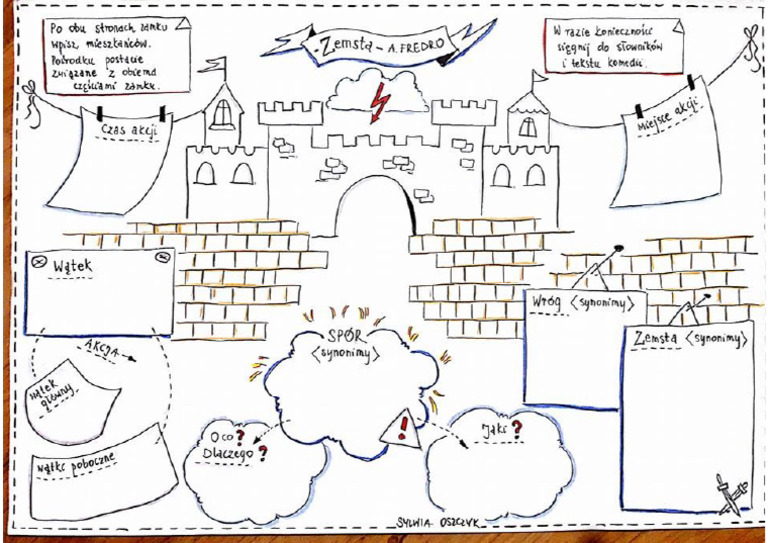 Po obu stronach zamku
wpisz mieszkańców.
Pośrodku postacie
związane z obiema
częściami zamku.
Zemsta - A. FREDRO
W razie konieczności
sięgnij do słowników
i tekstu komedii.
Czas akcji
Miejsce akcji
Wątek
AKCJA
Wątek
główny
Wątki poboczne
SPÓR
<synonimy>
O co?
Dlaczego?
!
Jaki?
Wróg <synonimy>
Zemsta <synonimy>
SYLWIA OSZCZYK